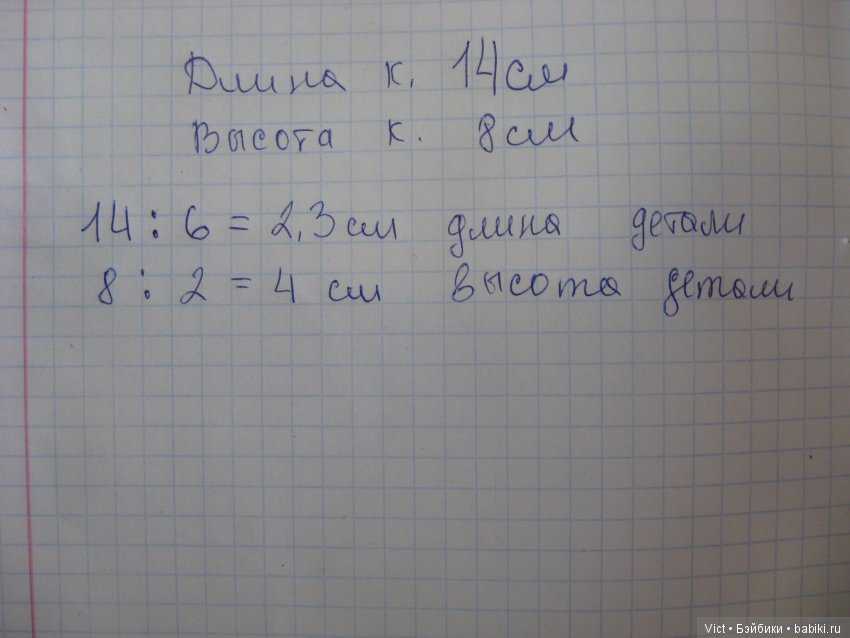 Длина к. 14см
Высота к. 8см
14 : 6 = 2,3 см длина детали
8 : 2 = 4 см высота детали
Vict • Бэйбики • babiki.ru